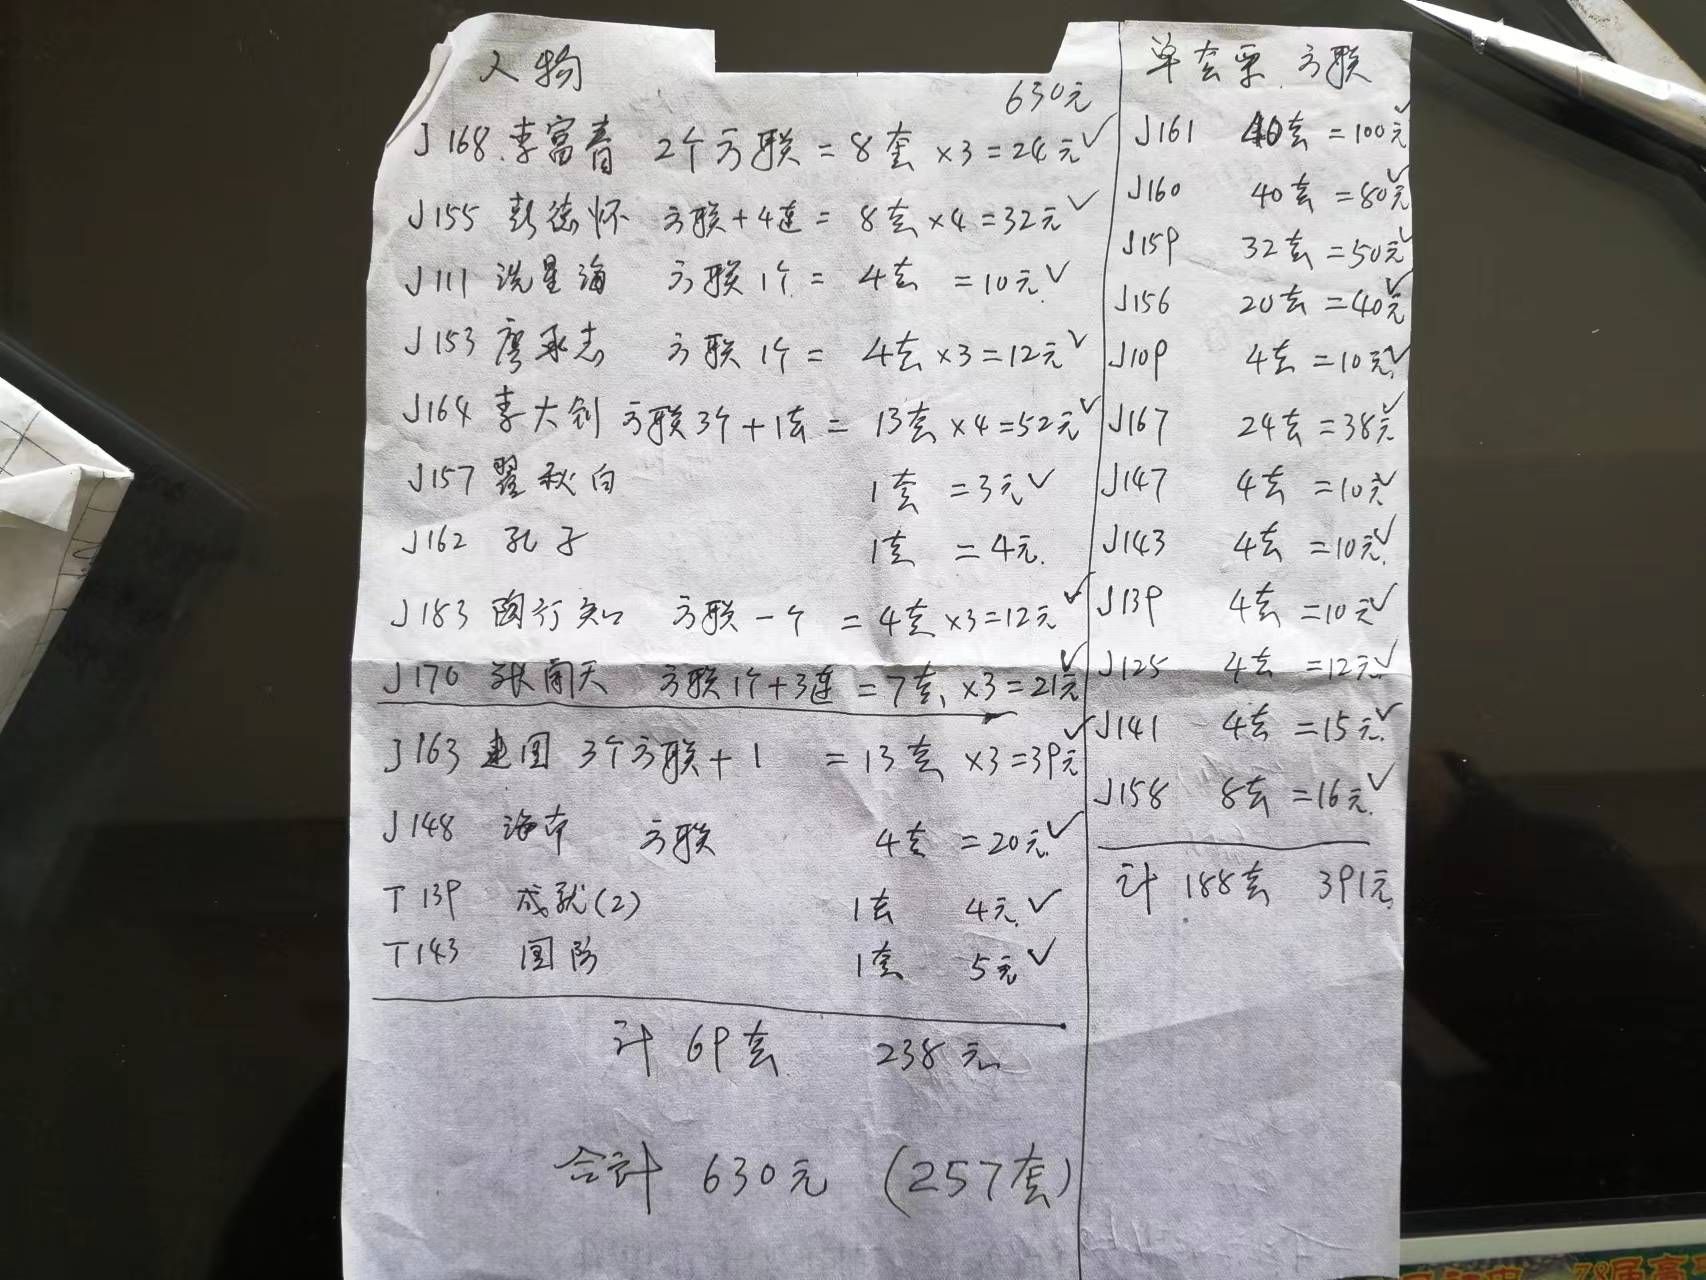 人物
630元
J168.李富春 2个方联 = 8套 ×3 = 24元✓
J155 彭德怀 方联+4连 = 8套×4 = 32元✓
J111 冼星海 方联1个 = 4套 = 10元✓
J153 廖承志 方联1个 = 4套×3 = 12元✓
J164 李大钊 方联3个+1套 = 13套×4 = 52元✓
J157 瞿秋白 1套 = 3元✓
J162 孔子 1套 = 4元.
J183 陶行知 方联一个 = 4套×3 = 12元✓
J170 张闻天 方联1个+3连 = 7套 ×3 = 21元✓
J163 建国 3个方联+1 = 13套 ×3 = 39元✓
J148 海南 方联 4套 = 20元✓
T139 成就(2) 1套 4元✓
T143 国防 1套 5元✓
计 69套 238元
合计 630元 (257套)
单套票.方联
J161 40套 = 100元✓
J160 40套 = 80元✓
J159 32套 = 50元✓
J156 20套 = 40元✓
J109 4套 = 10元✓
J167 24套 = 38元✓
J147 4套 = 10元✓
J143 4套 = 10元✓
J139 4套 = 10元✓
J125 4套 = 12元✓
J141 4套 = 15元✓
J158 8套 = 16元✓
计 188套 391元